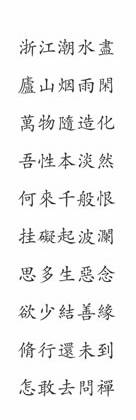 浙江潮水盡
廬山烟雨閑
萬物隨造化
吾性本淡然
何來千般恨
挂礙起波瀾
思多生惡念
欲少結善緣
脩行還未到
怎敢去問禪